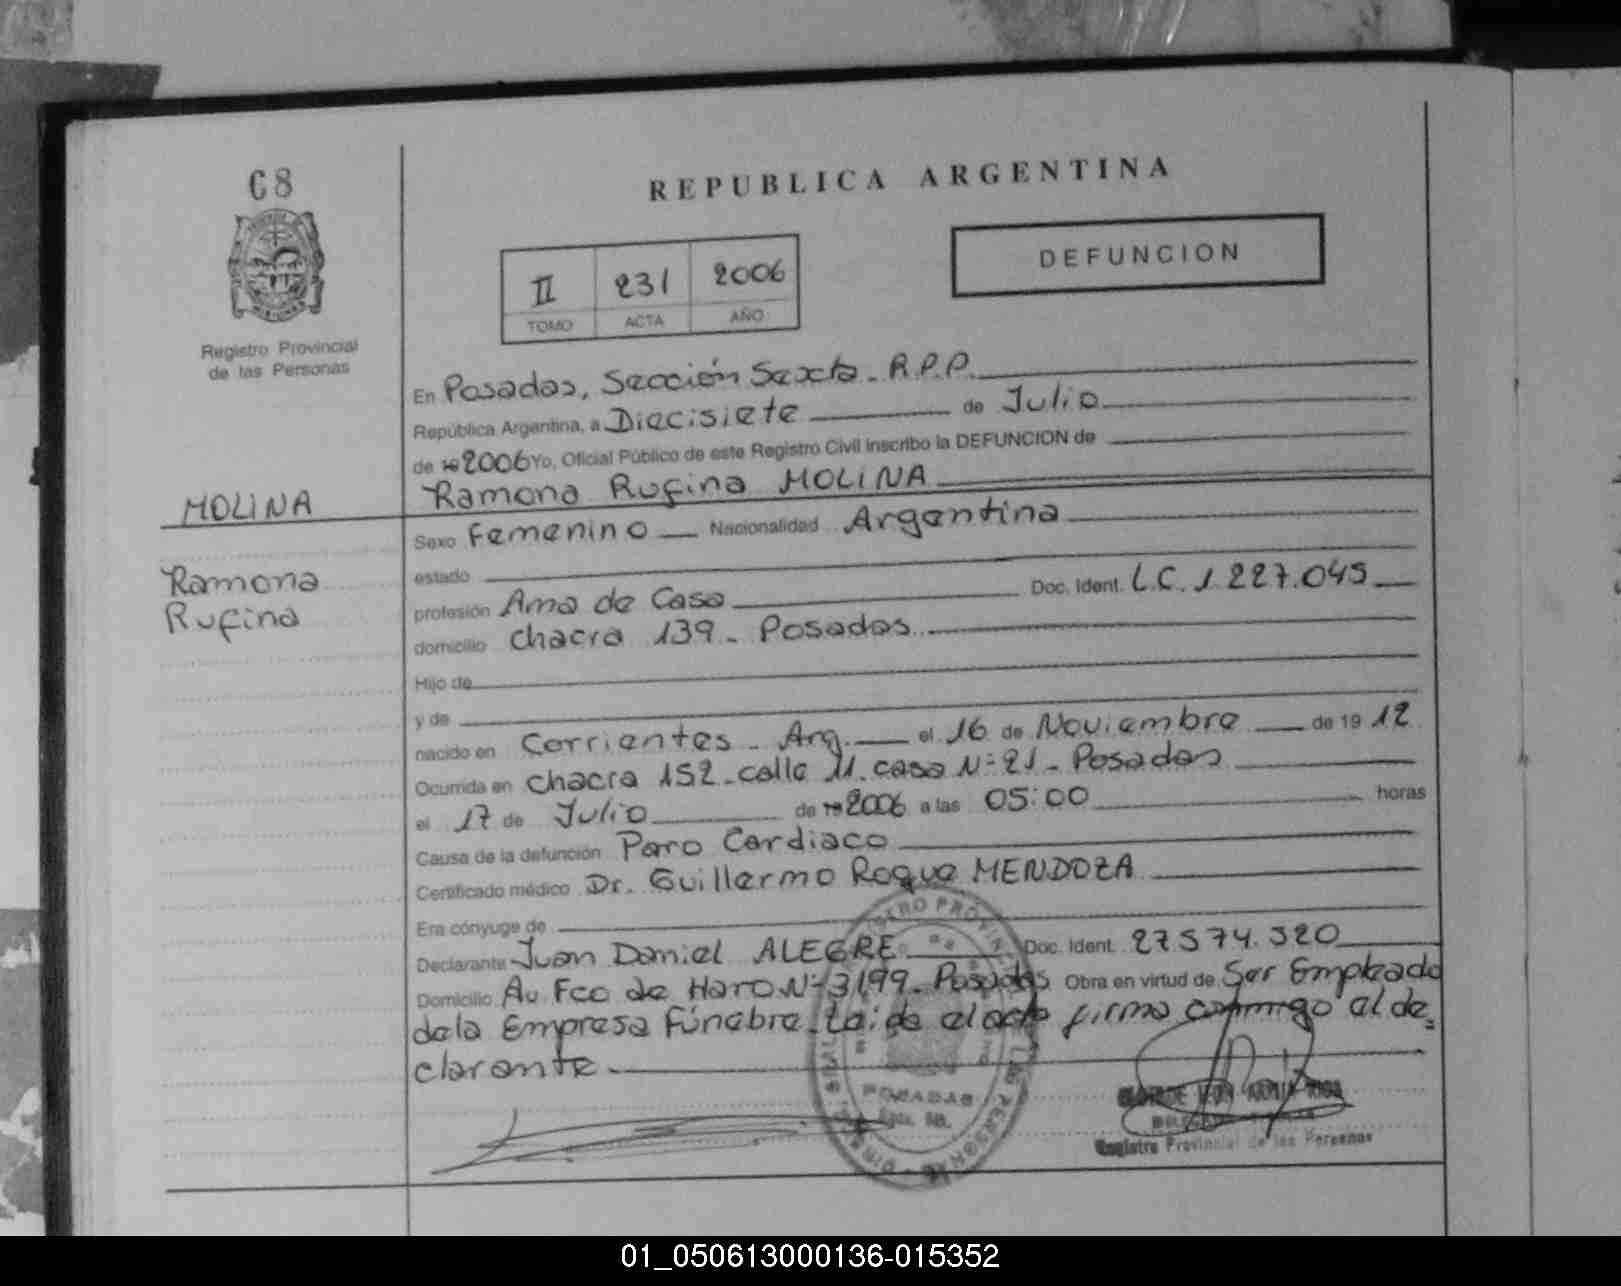 C8
REPUBLICA ARGENTINA
II 231 2006
TOMO ACTA AÑO
DEFUNCION
Registro Provincial
de las Personas
En Posadas, Sección Sexta - R.P.P.
República Argentina, a Diecisiete de Julio
de 19 2006 Yo, Oficial Público de este Registro Civil inscribo la DEFUNCION de
MOLINA Ramona Rufina MOLINA
Sexo Femenino Nacionalidad Argentina
Ramona
Rufina
estado
profesión Ama de Casa Doc. Ident. L.C. 1.227.045
domicilio chacra 139 - Posadas
Hijo de
y de
nacido en Corrientes - Arg. el 16 de Noviembre de 19 12
Ocurrida en chacra 152 - calle 11 - casa Nº 21 - Posadas
el 17 de Julio de 19 2006 a las 05:00 horas
Causa de la defunción Paro Cardiaco
Certificado médico Dr. Guillermo Roque MENDOZA
Era cónyuge de
Declarante Juan Daniel ALEGRE Doc. Ident. 27574.520
Domicilio Av. Fco de Haro Nº 3199 - Posadas Obra en virtud de Ser Empleado
de la Empresa Fúnebre - Leída el acta firma conmigo el de=
clarante.
POSADAS
Registro Provincial de las Personas
01_050613000136-015352